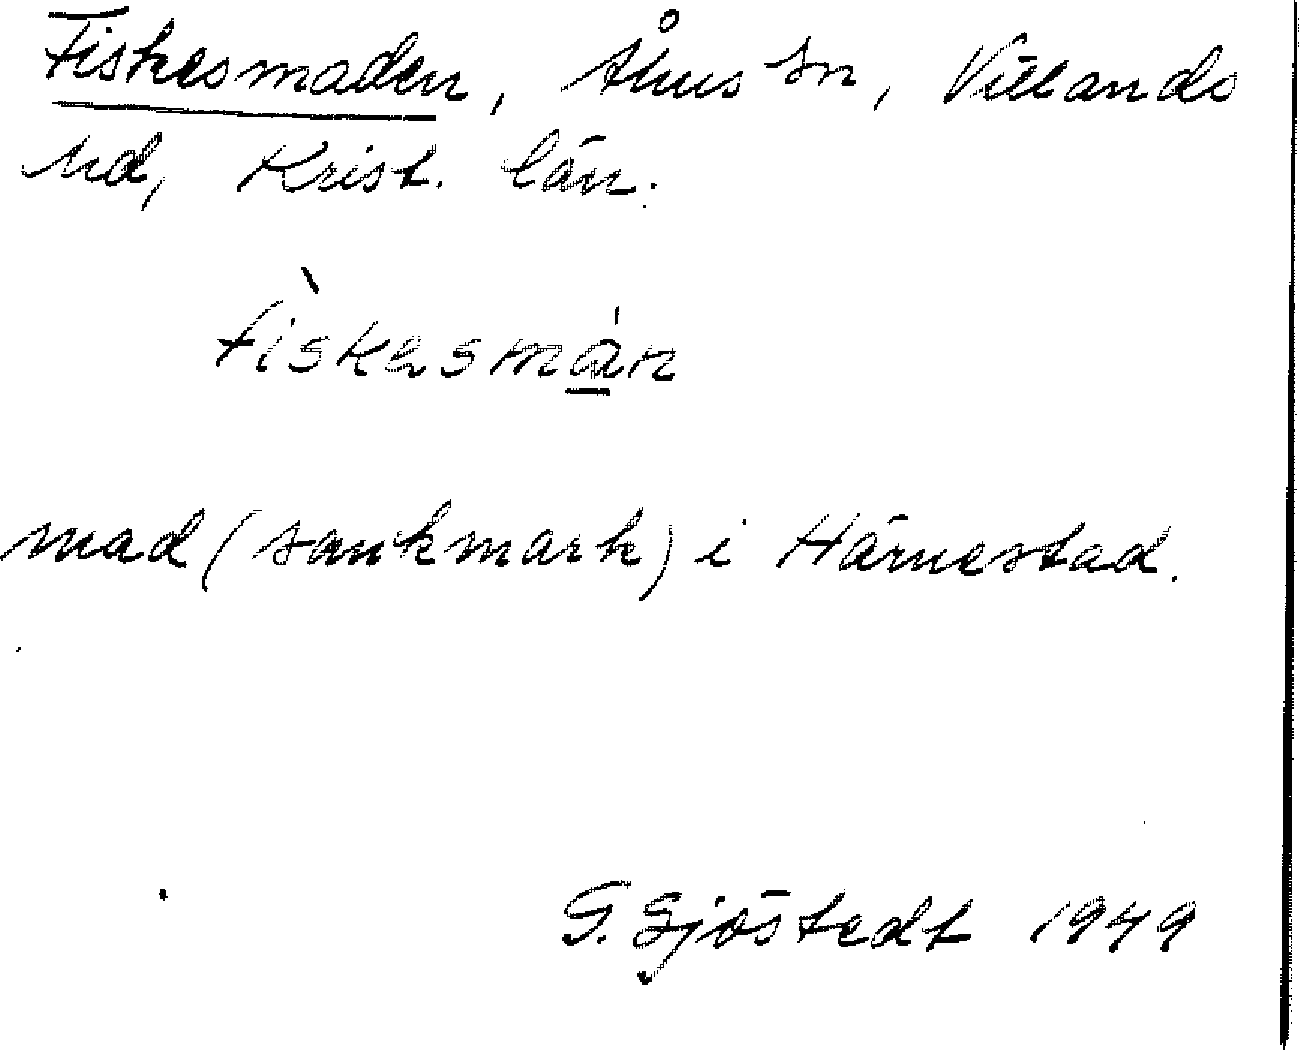 Fiskesmaden, Åhus sn, Villands
hd, Krist. län.
Fìskesmán
mad (sankmark) i Härnestad.
G. Sjöstedt 1949